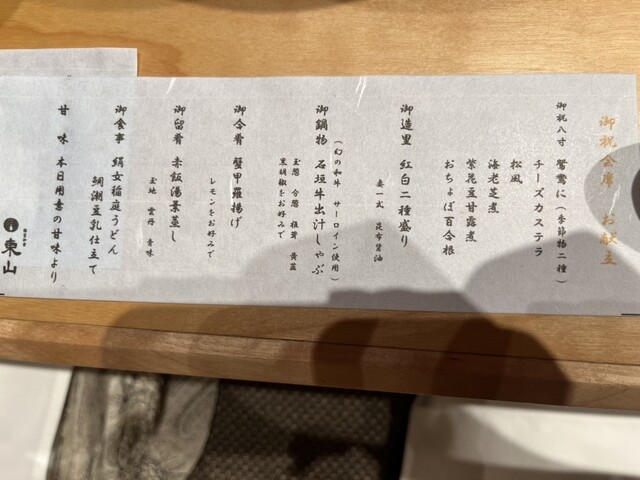 御祝会席 お献立
御祝八寸 鴛鴦に(季節物二種)
チーズカステラ
松風
海老芝煮
紫花豆甘露煮
おちょぼ百合根
御造里 紅白二種盛り
妻一式 昆布醤油
(幻の和牛 サーロイン使用)
御鍋物 石垣牛出汁しゃぶ
玉葱 分葱 椎茸 黄韮
黒胡椒をお好みで
御合肴 蟹甲羅揚げ
レモンをお好みで
御留肴 赤飯湯葉蒸し
玉地 雲丹 香味
御食事 絹女稲庭うどん
鯛潮豆乳仕立て
甘味 本日用意の甘味より
東山